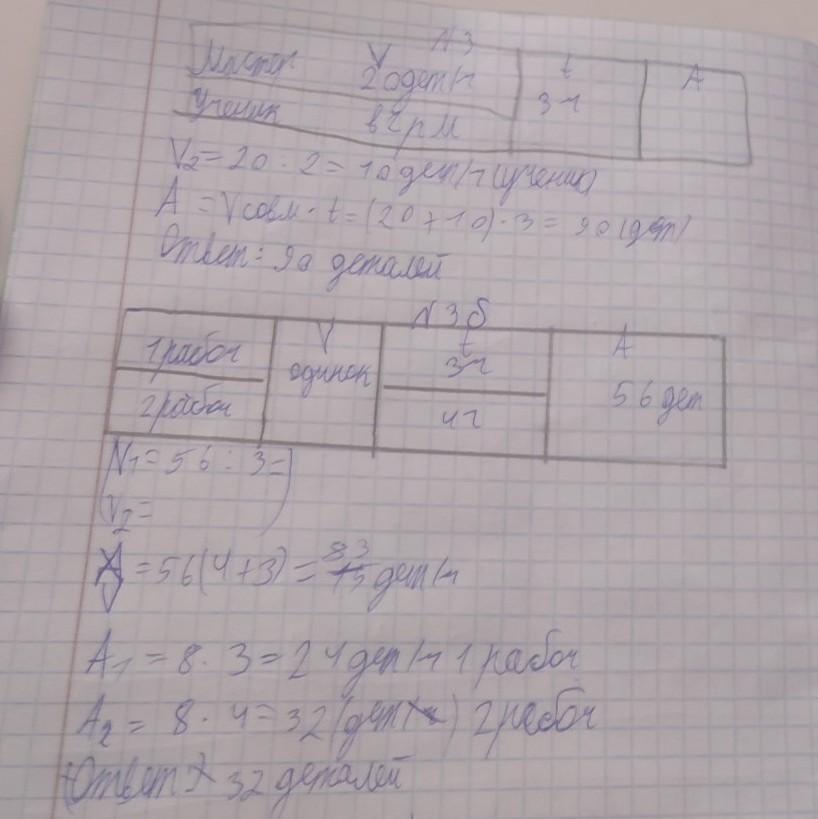 N3
V t A
Мастер 20дет/ч 3ч
Ученик в 2 р М
V2 = 20 : 2 = 10 дет/ч (ученик)
A = Vсовм · t = (20 + 10) · 3 = 90 (дет)
Ответ: 90 деталей
N3б
V t A
1 рабоч одинак 3ч 56 дет
2 рабоч 4ч
V1 = 56 : 3 =
V2 =
V = 56(4+3) = 8 дет/ч
A1 = 8 · 3 = 24 дет/ч 1 рабоч
A2 = 8 · 4 = 32 (дет) 2 рабоч
Ответ 32 деталей